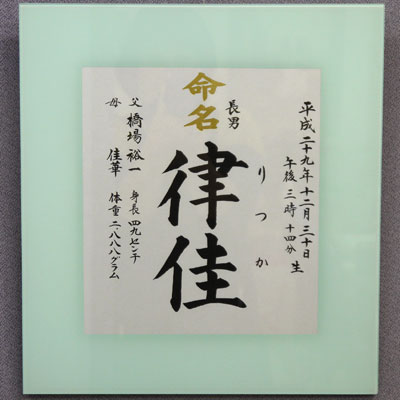 平成二十九年十二月三十日
午後三時十四分 生
りつか
長男
命名
律佳
父 橋場 裕一
母 佳華
身長 四九センチ
体重 二、八八八グラム